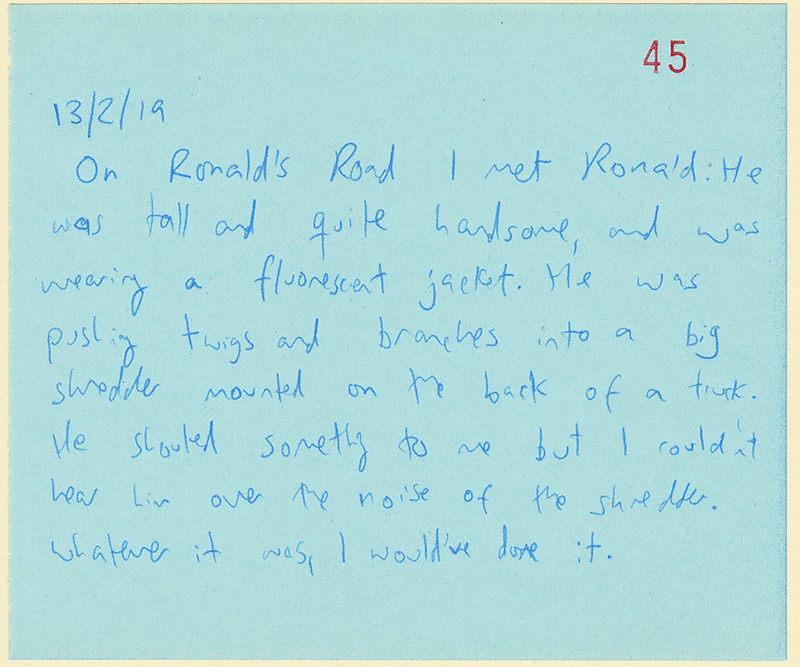 45
13/2/19
On Ronald's Road I met Ronald. He
was tall and quite handsome, and was
wearing a fluorescent jacket. He was
pushing twigs and branches into a big
shredder mounted on the back of a truck.
He shouted something to me but I couldn't
hear him over the noise of the shredder.
Whatever it was, I would've done it.